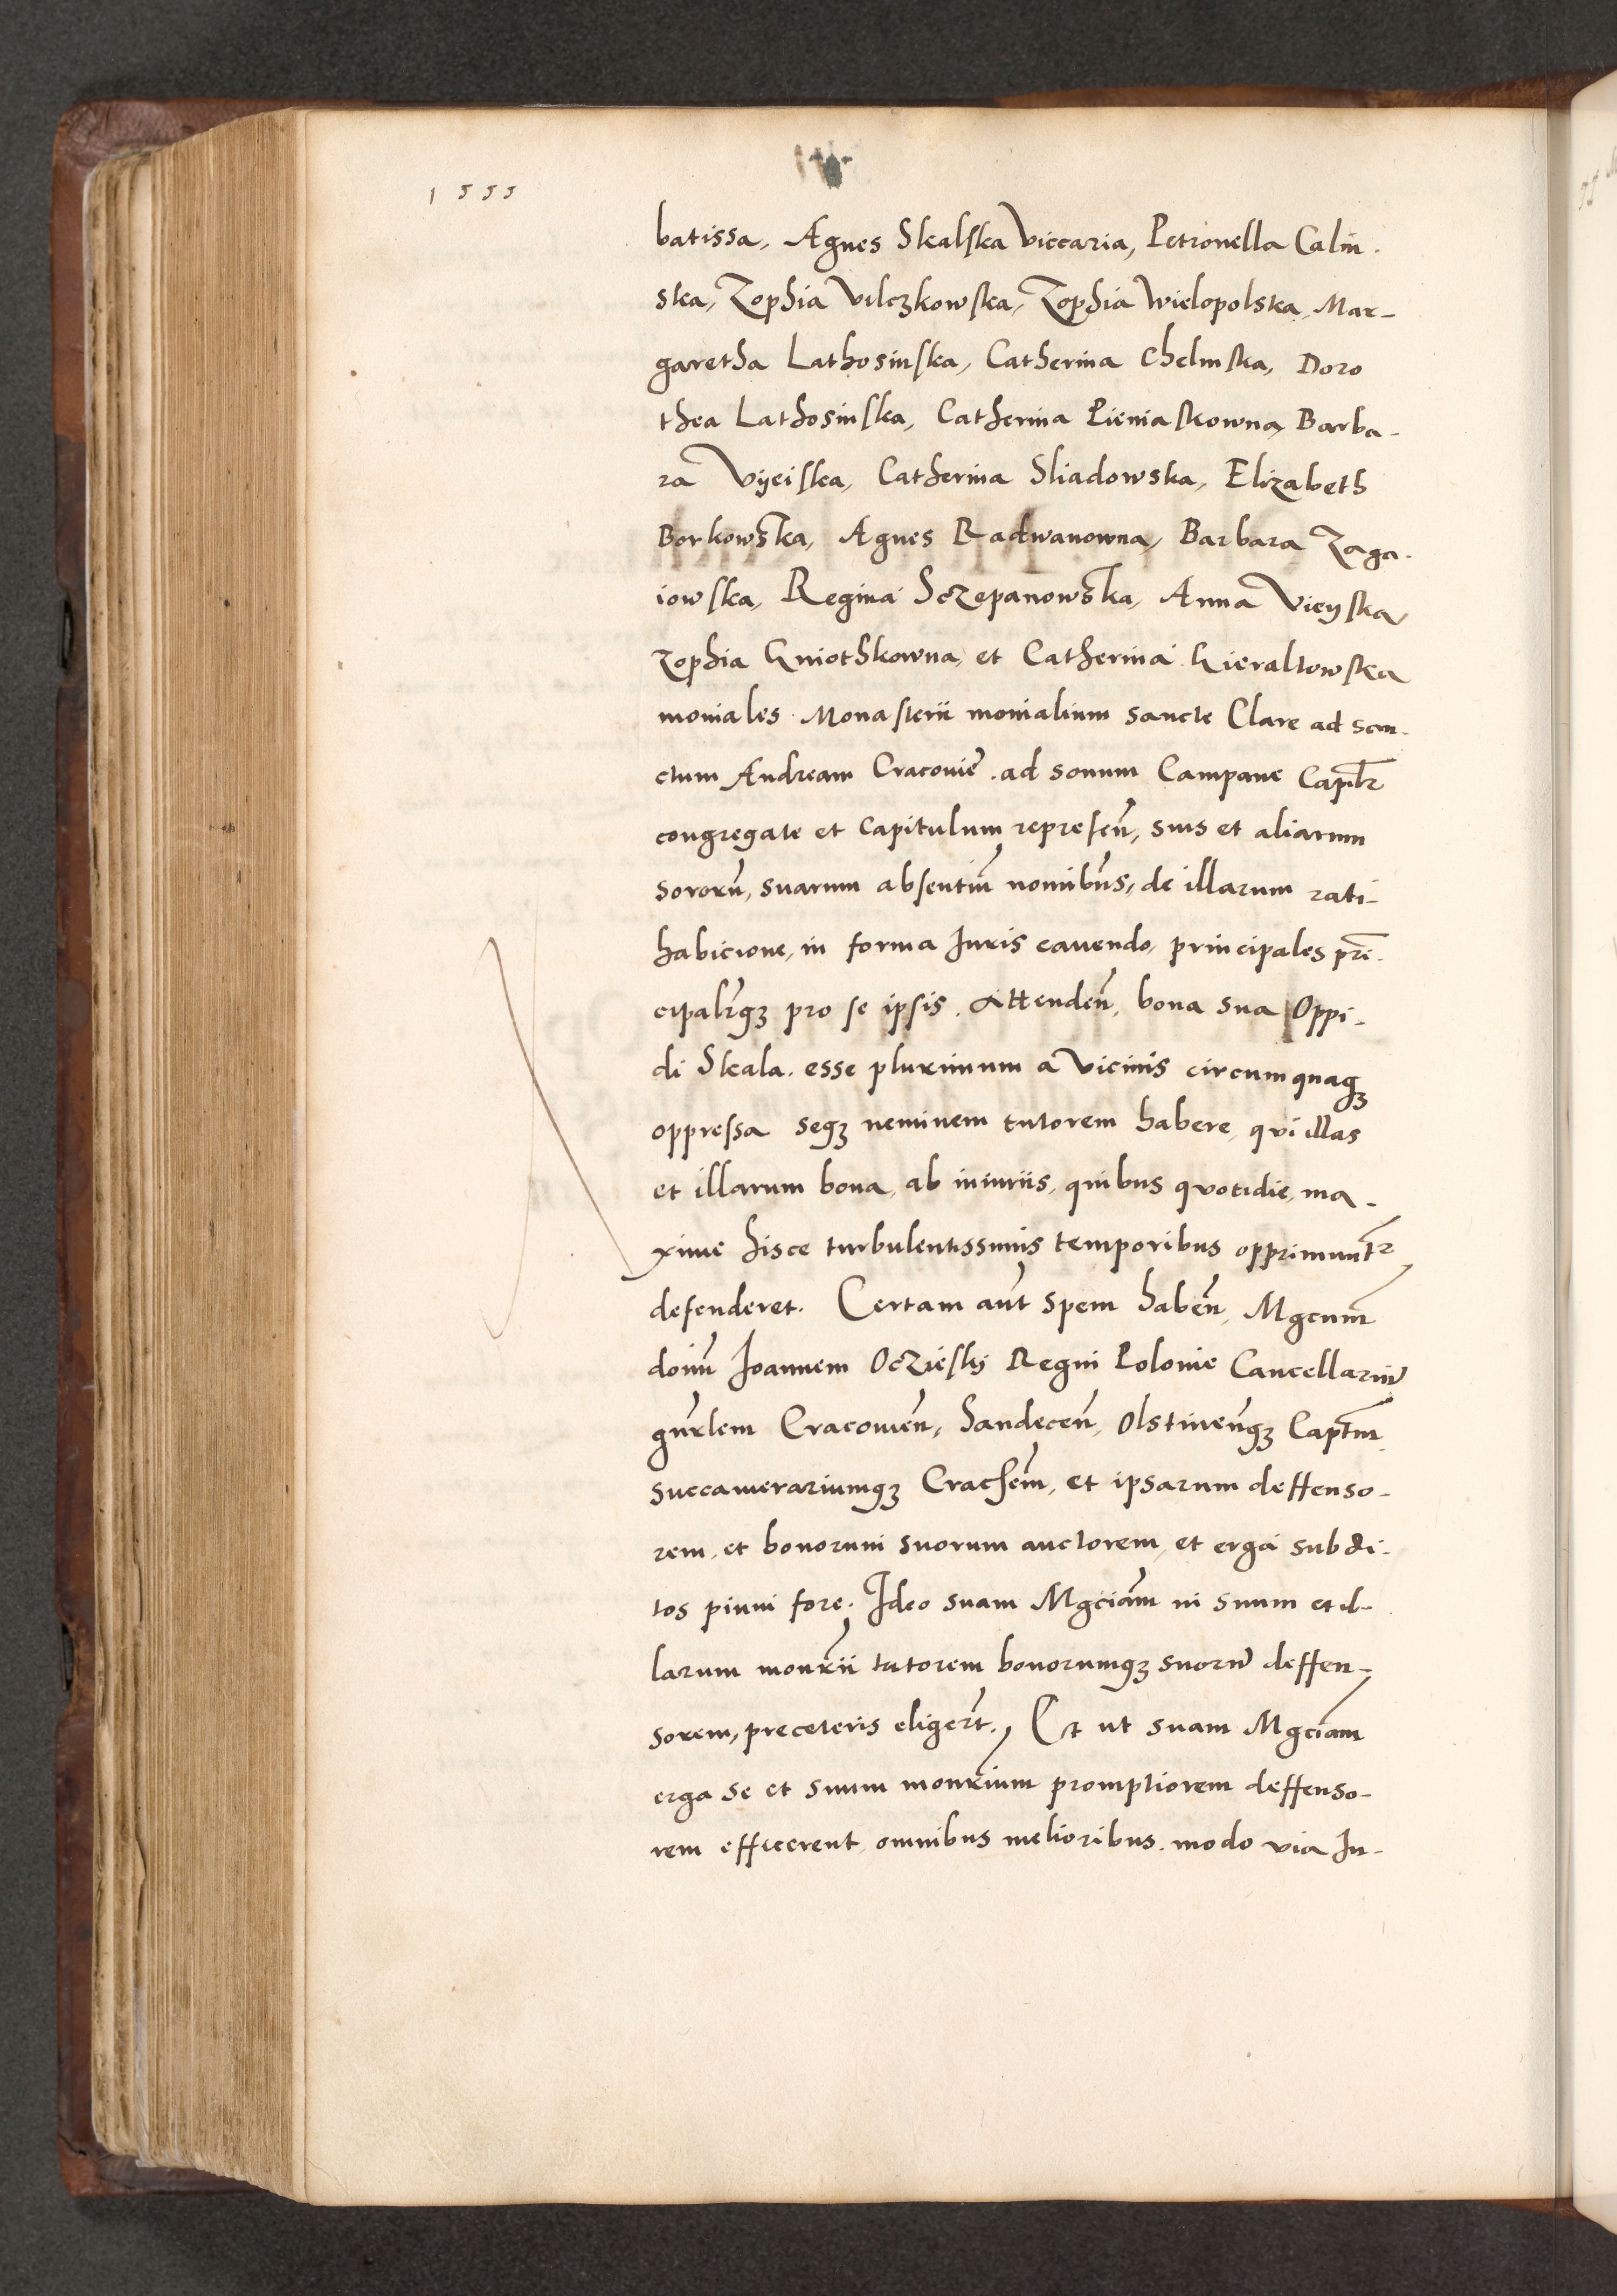 1555
batissa, Agnes Skalska Viccaria, Petronella Calin-
ska, Zophia Vilczkowska, Zophia Wielopolska, Mar-
garetha Lathosinska, Catherina Chelmska, Doro
thea Lathosinska, Catherina Pieniaskowna, Barba-
ra Vijeiska, Catherina Sliadowska, Elizabeth
Borkowska, Agnes Radwanowna, Barbara Zaga-
iowska, Regina Sczepanowska, Anna Vieyska
Zophia Gniothkowna, et Catherina Gieraltowska
moniales Monasterii monialium sancte Clare ad san-
ctum Andream Cracovie, ad sonum Campane Caplr
congregate et capitulum represen̄, suis et aliarum
sororū, suarum absentiū nomibus, de illarum rati-
habicione, in forma Iuris cavendo, principales prī-
cipalrq3 pro se ipsis. Attenden̄, bona sua Oppi-
di Skala esse plurimum a Vicinis circumquaq3
oppressa seq3 neminem tutorem habere, qui illas
et illarum bona, ab iniuriis, quibus quotidie, ma-
xime hisce turbulentissimis temporibus opprimunt̄r
defenderet. Certam aūt spem haben̄, Mgcum̄
doīm Joannem Oczieskj Regni Polonie Cancellariū
gnr̄lem Cracovien̄, Sandecen̄, Olstinen̄q3 Captm̄
succamerariumq3 Cracsem̄, et ipsarum deffenso-
rem, et bonorum suorum auctorem, et erga subdi-
tos pium fore. Ideo suam Mgciam̄ in suum et il-
larum monr̄ii tutorem bonorumq3 suorū deffen-
sorem, preceteris eliger̄t. Et ut suam Mgciam̄
erga se et suum monr̄ium promptiorem deffenso-
rem efficerent, omnibus melioribus modo via Iu-